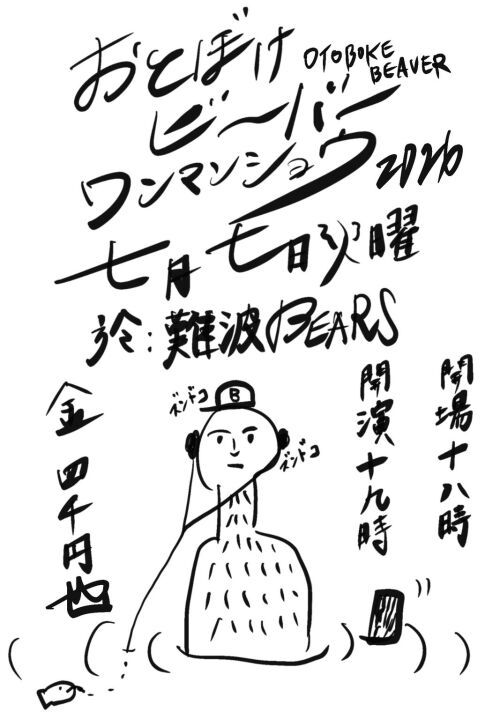 おとぼけ
ビ〜バ〜
OTOBOKE
BEAVER
ワンマンショウ
2026
七月七日火曜
於:難波BEARS
開場十八時
開演十九時
金四千円也
B
ズンドコ
ズンドコ